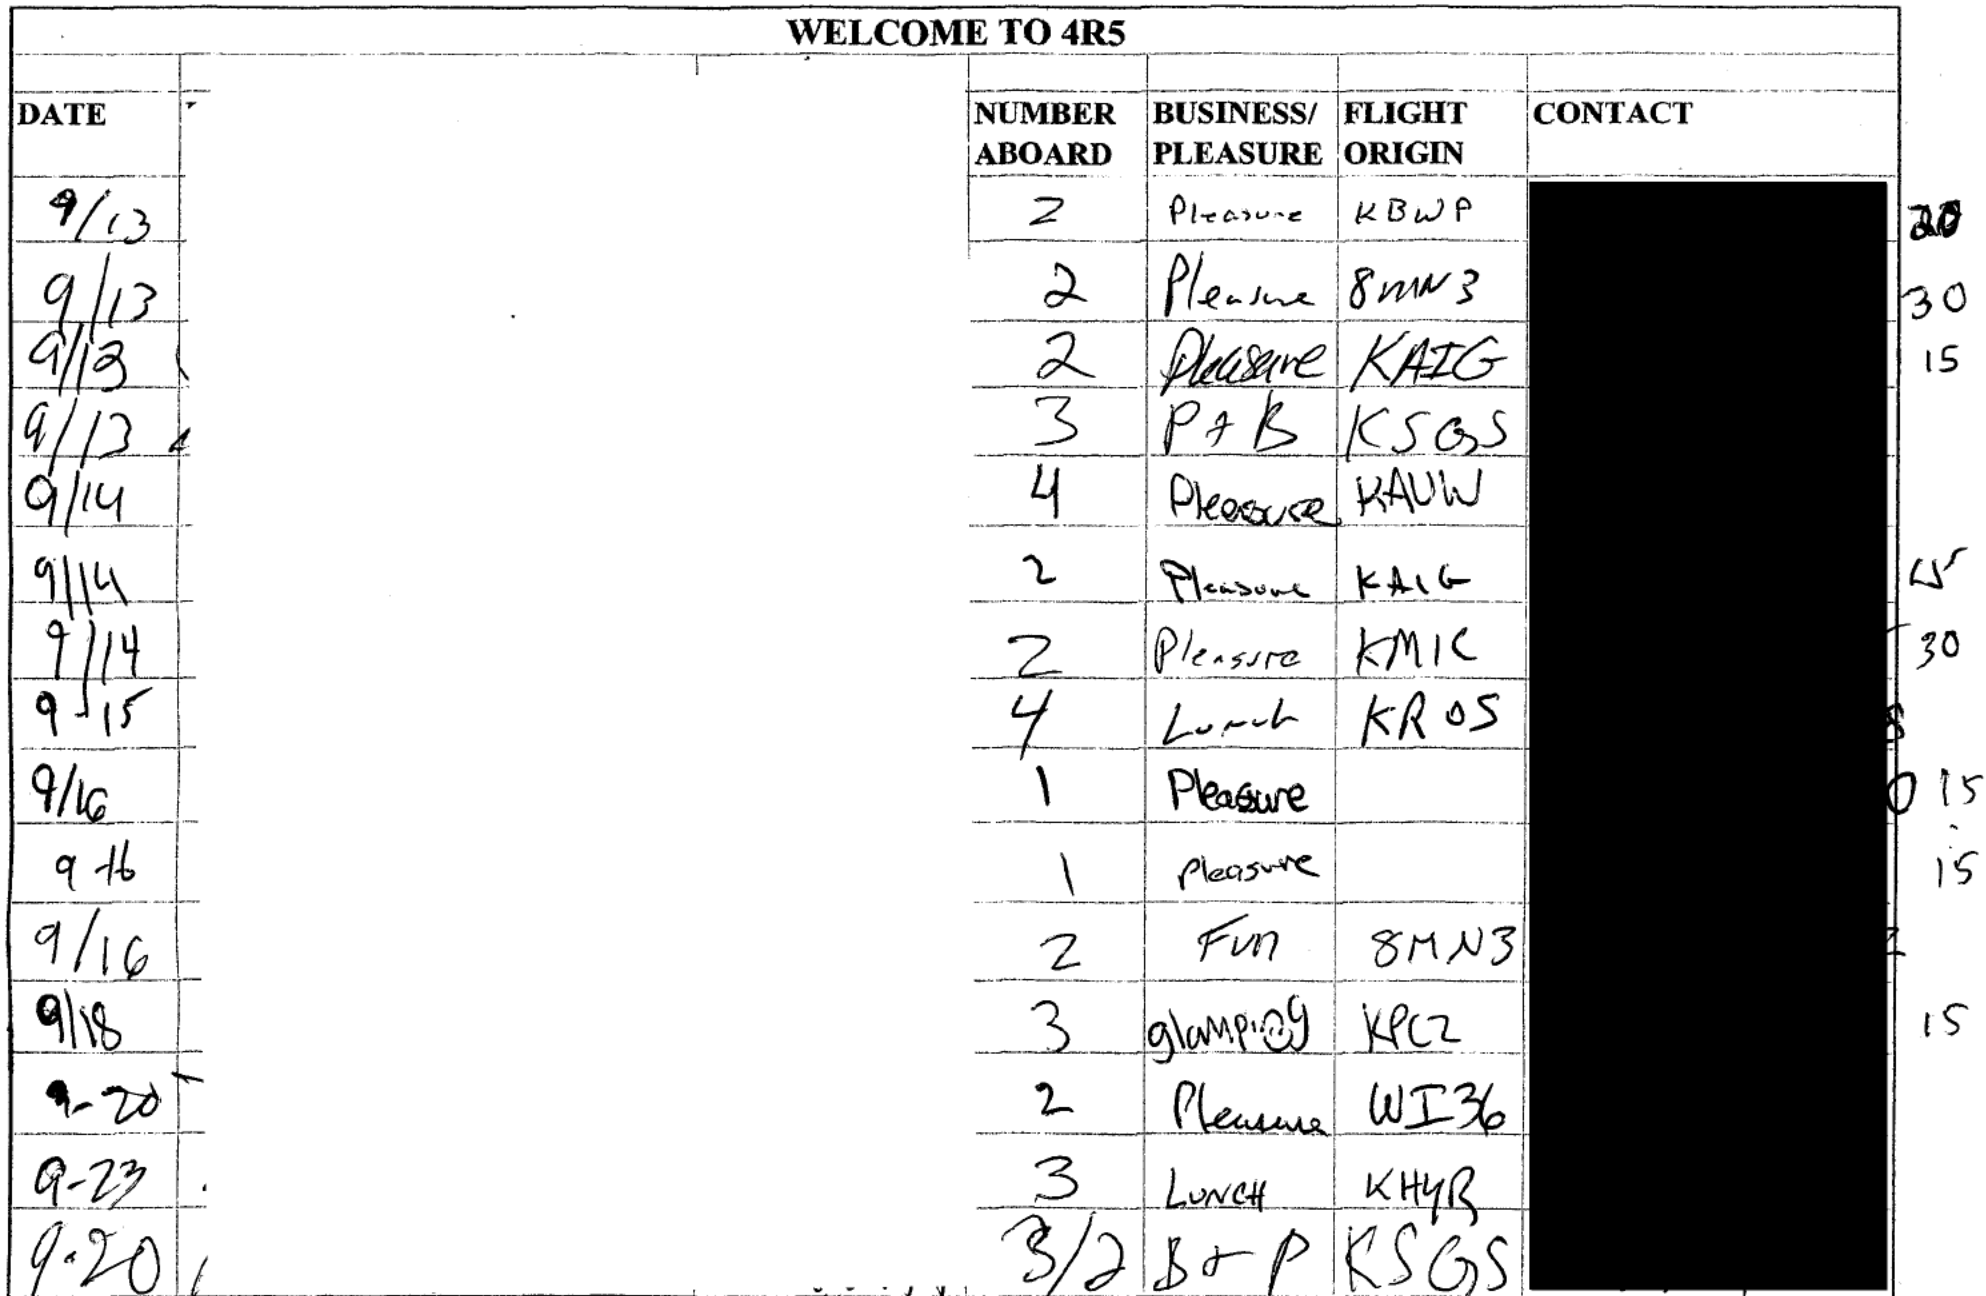 WELCOME TO 4R5
DATE NUMBER ABOARD BUSINESS/ PLEASURE FLIGHT ORIGIN CONTACT
9/13 2 Pleasure KBWP
9/13 2 Pleasure 8MN3 30
9/13 2 Pleasure KAIG 15
9/13 3 P + B KSGS
9/14 4 Pleasure KAUW
9/14 2 Pleasure KAIG
9/14 2 Pleasure KMIC 30
9-15 4 Lunch KROS
9/16 1 Pleasure 15
9-16 1 pleasure 15
9/16 2 Fun 8MN3
9/18 3 glamping KPCZ 15
9-20 2 Pleasure WI36
9-23 3 LUNCH KHYR
9-20 3/2 B + P KSGS